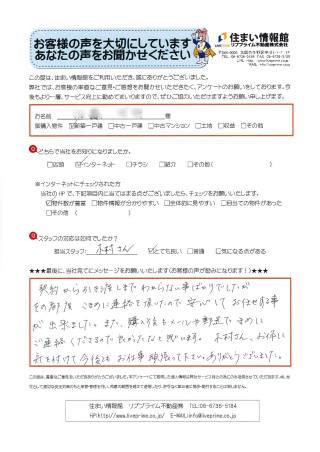 お客様の声を大切にしています
あなたの声をお聞かせください
住まい情報館
LIVE PRIME リブプライム不動産株式会社
TEL 06-6736-5184 FAX 06-6736-5185
この度は、住まい情報館をご利用いただき、誠にありがとうございました。
弊社では、お客様の率直なご意見・ご感想をお聞かせいただきたく、アンケートのお願いをしております。今
後もより一層、サービス向上に勤めてまいりますので、ぜひご協力いただけますようお願い申し上げます。
お名前 様
御購入物件 ☑新築一戸建 □中古一戸建 □中古マンション □土地 □収益 □その他
Q どちらで当社をお知りになりましたか。
□店頭 ☑インターネット □チラシ □紹介 □その他( )
※インターネットにチェックされた方
当社のHPで、下記項目内に当てはまる点がございましたら、チェックをお願いします。
☑物件数が豊富 □物件情報が分かりやすい □全体的に見やすい □目当ての物件があった
□その他 ( )
Q スタッフの対応は如何でしたか?
担当スタッフ: 木村さん ☑とても良い □普通 □気になる点がある
★★★最後に、当社宛てにメッセージをお願いいたします(お客様の声が励みになります!)★★★
契約から引き渡しまでわからない事ばかりでしたが
その都度 こまめに連絡を頂いたので安心してお任せする事
が出来ました。また、購入後もメールや郵送でまめに
ご連絡くださるので良かったなと思います。木村さん、お体に
気を付けて今後もお仕事頑張って下さい。ありがとうございました。
住まい情報館 リブプライム不動産㈱ TEL:06-6736-5184
HP:http://www.liveprime.co.jp/ E-MAIL:info@liveprime.co.jp